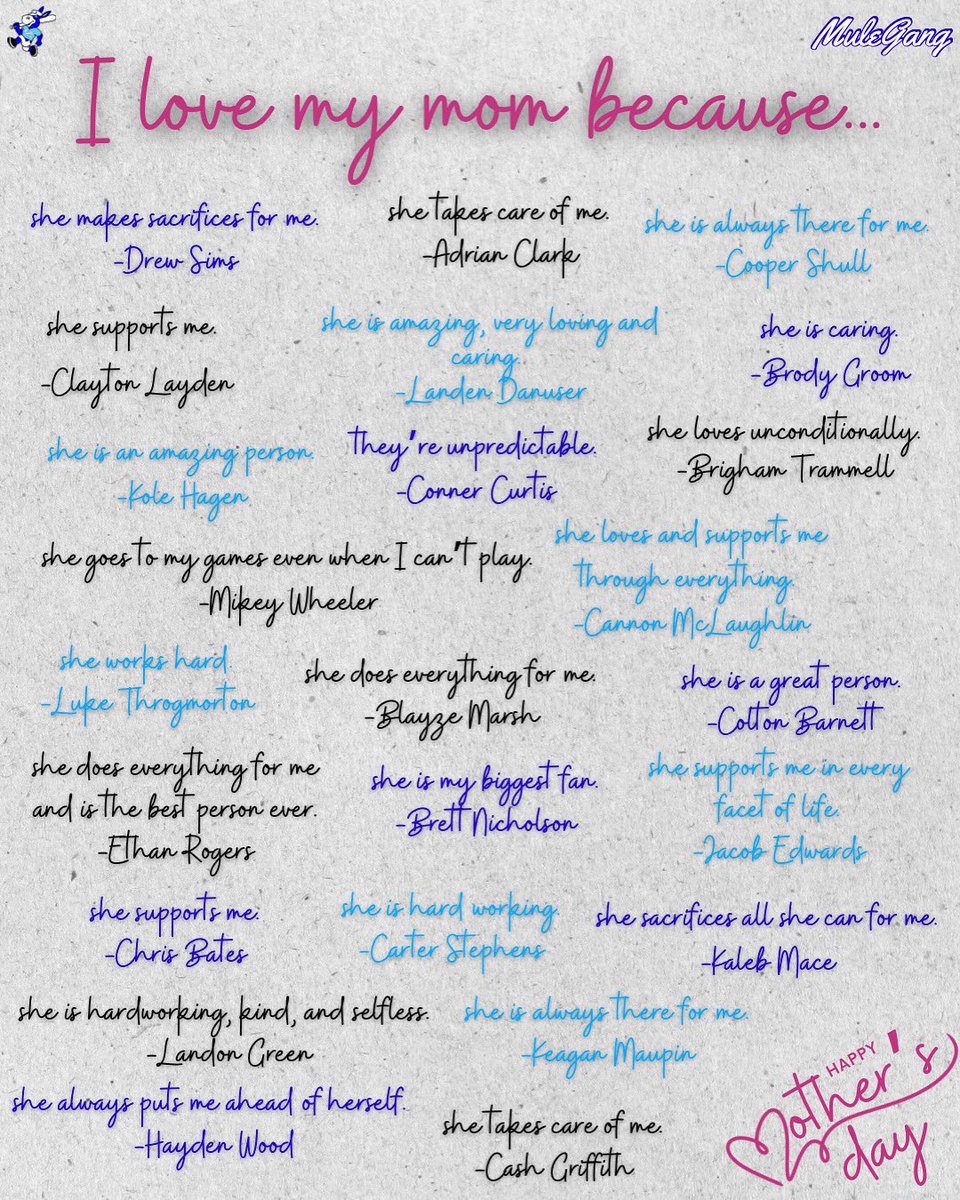 MuleGang
I love my mom because...
she makes sacrifices for me.
-Drew Sims
she takes care of me.
-Adrian Clark
she is always there for me.
-Cooper Shull
she supports me.
-Clayton Layden
she is amazing, very loving and
caring.
-Landen Danuser
she is caring.
-Brody Groom
she is an amazing person.
-Kole Hagen
they're unpredictable.
-Conner Curtis
she loves unconditionally.
-Brigham Trammell
she goes to my games even when I can't play.
-Mikey Wheeler
she loves and supports me
through everything.
-Cannon McLaughlin
she works hard
-Luke Throgmorton
she does everything for me.
-Blayze Marsh
she is a great person.
-Colton Barnett
she does everything for me
and is the best person ever.
-Ethan Rogers
she is my biggest fan.
-Brett Nicholson
she supports me in every
facet of life.
-Jacob Edwards
she supports me.
-Chris Bates
she is hard working.
-Carter Stephens
she sacrifices all she can for me.
-Kaleb Mace
she is hardworking, kind, and selfless.
-Landon Green
she is always there for me.
-Keagan Maupin
she always puts me ahead of herself.
-Hayden Wood
she takes care of me.
-Cash Griffith
HAPPY
Mother's
day